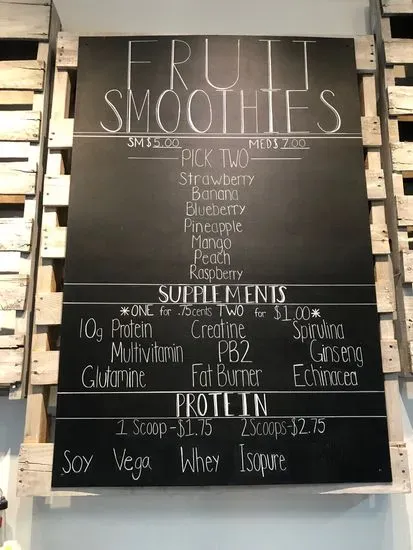 FRUIT
SMOOTHIES
SM $5.00 MED $7.00
PICK TWO
Strawberry
Banana
Blueberry
Pineapple
Mango
Peach
Raspberry
SUPPLEMENTS
*ONE for .75cents TWO for $1.00*
10g Protein Creatine Spirulina
Multivitamin PB2 Ginseng
Glutamine Fat Burner Echinacea
PROTEIN
1 Scoop-$1.75 2Scoops-$2.75
Soy Vega Whey Isopure